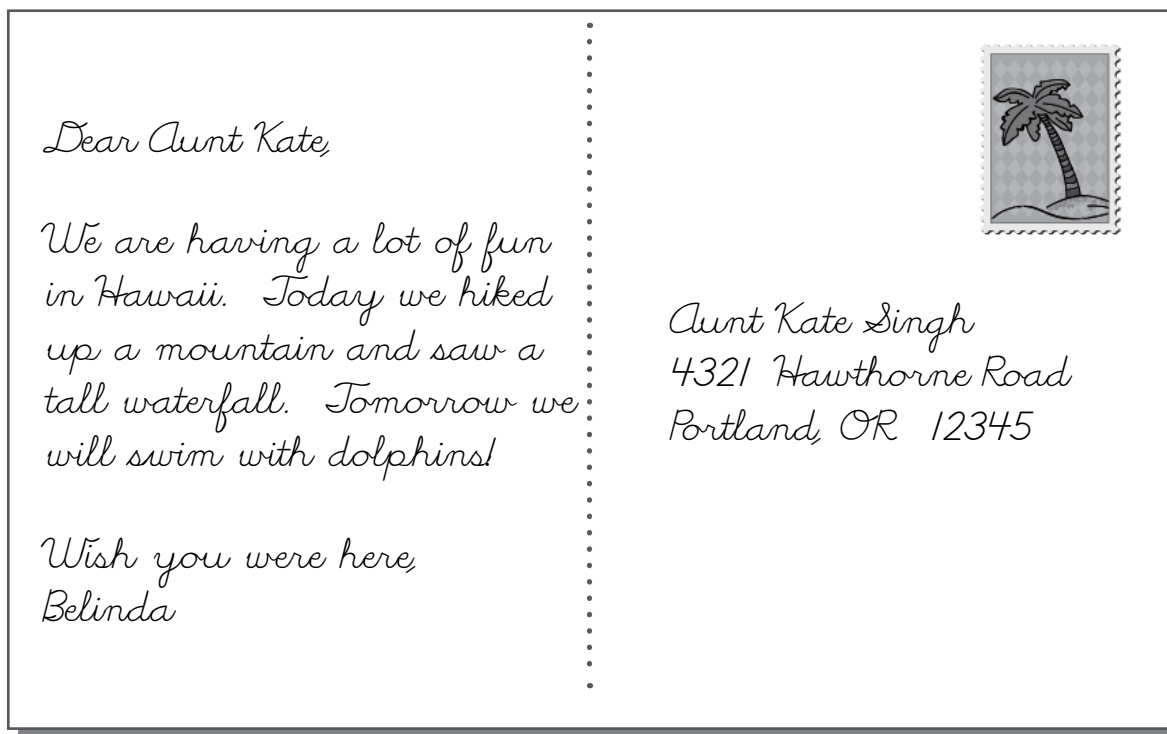 Dear Aunt Kate,
We are having a lot of fun
in Hawaii. Today we hiked
up a mountain and saw a
tall waterfall. Tomorrow we
will swim with dolphins!
Wish you were here,
Belinda
Aunt Kate Singh
4321 Hawthorne Road
Portland, OR 12345